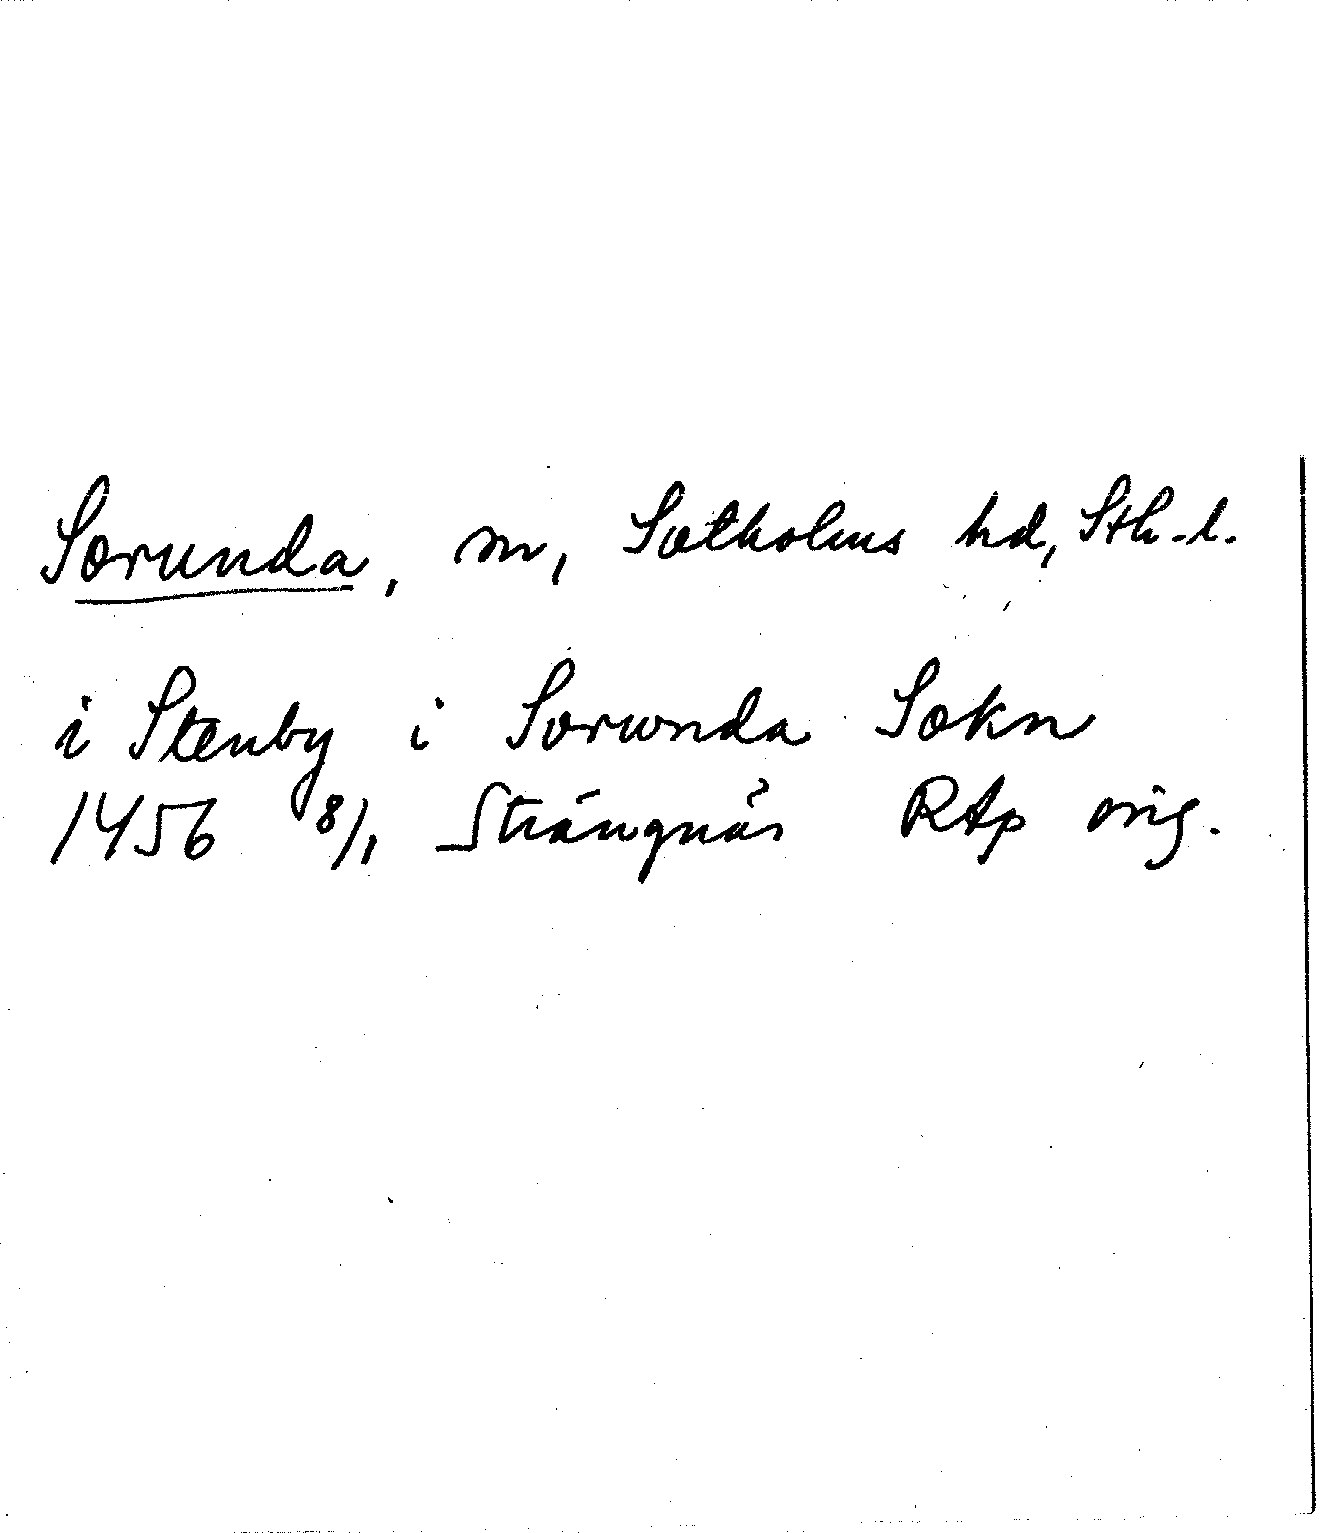 Sorunda, sn, Sotholms hd, Sth.l.
i Stenby i Sorwnda Sokn
1456 8/1 Strängnäs RAp orig.